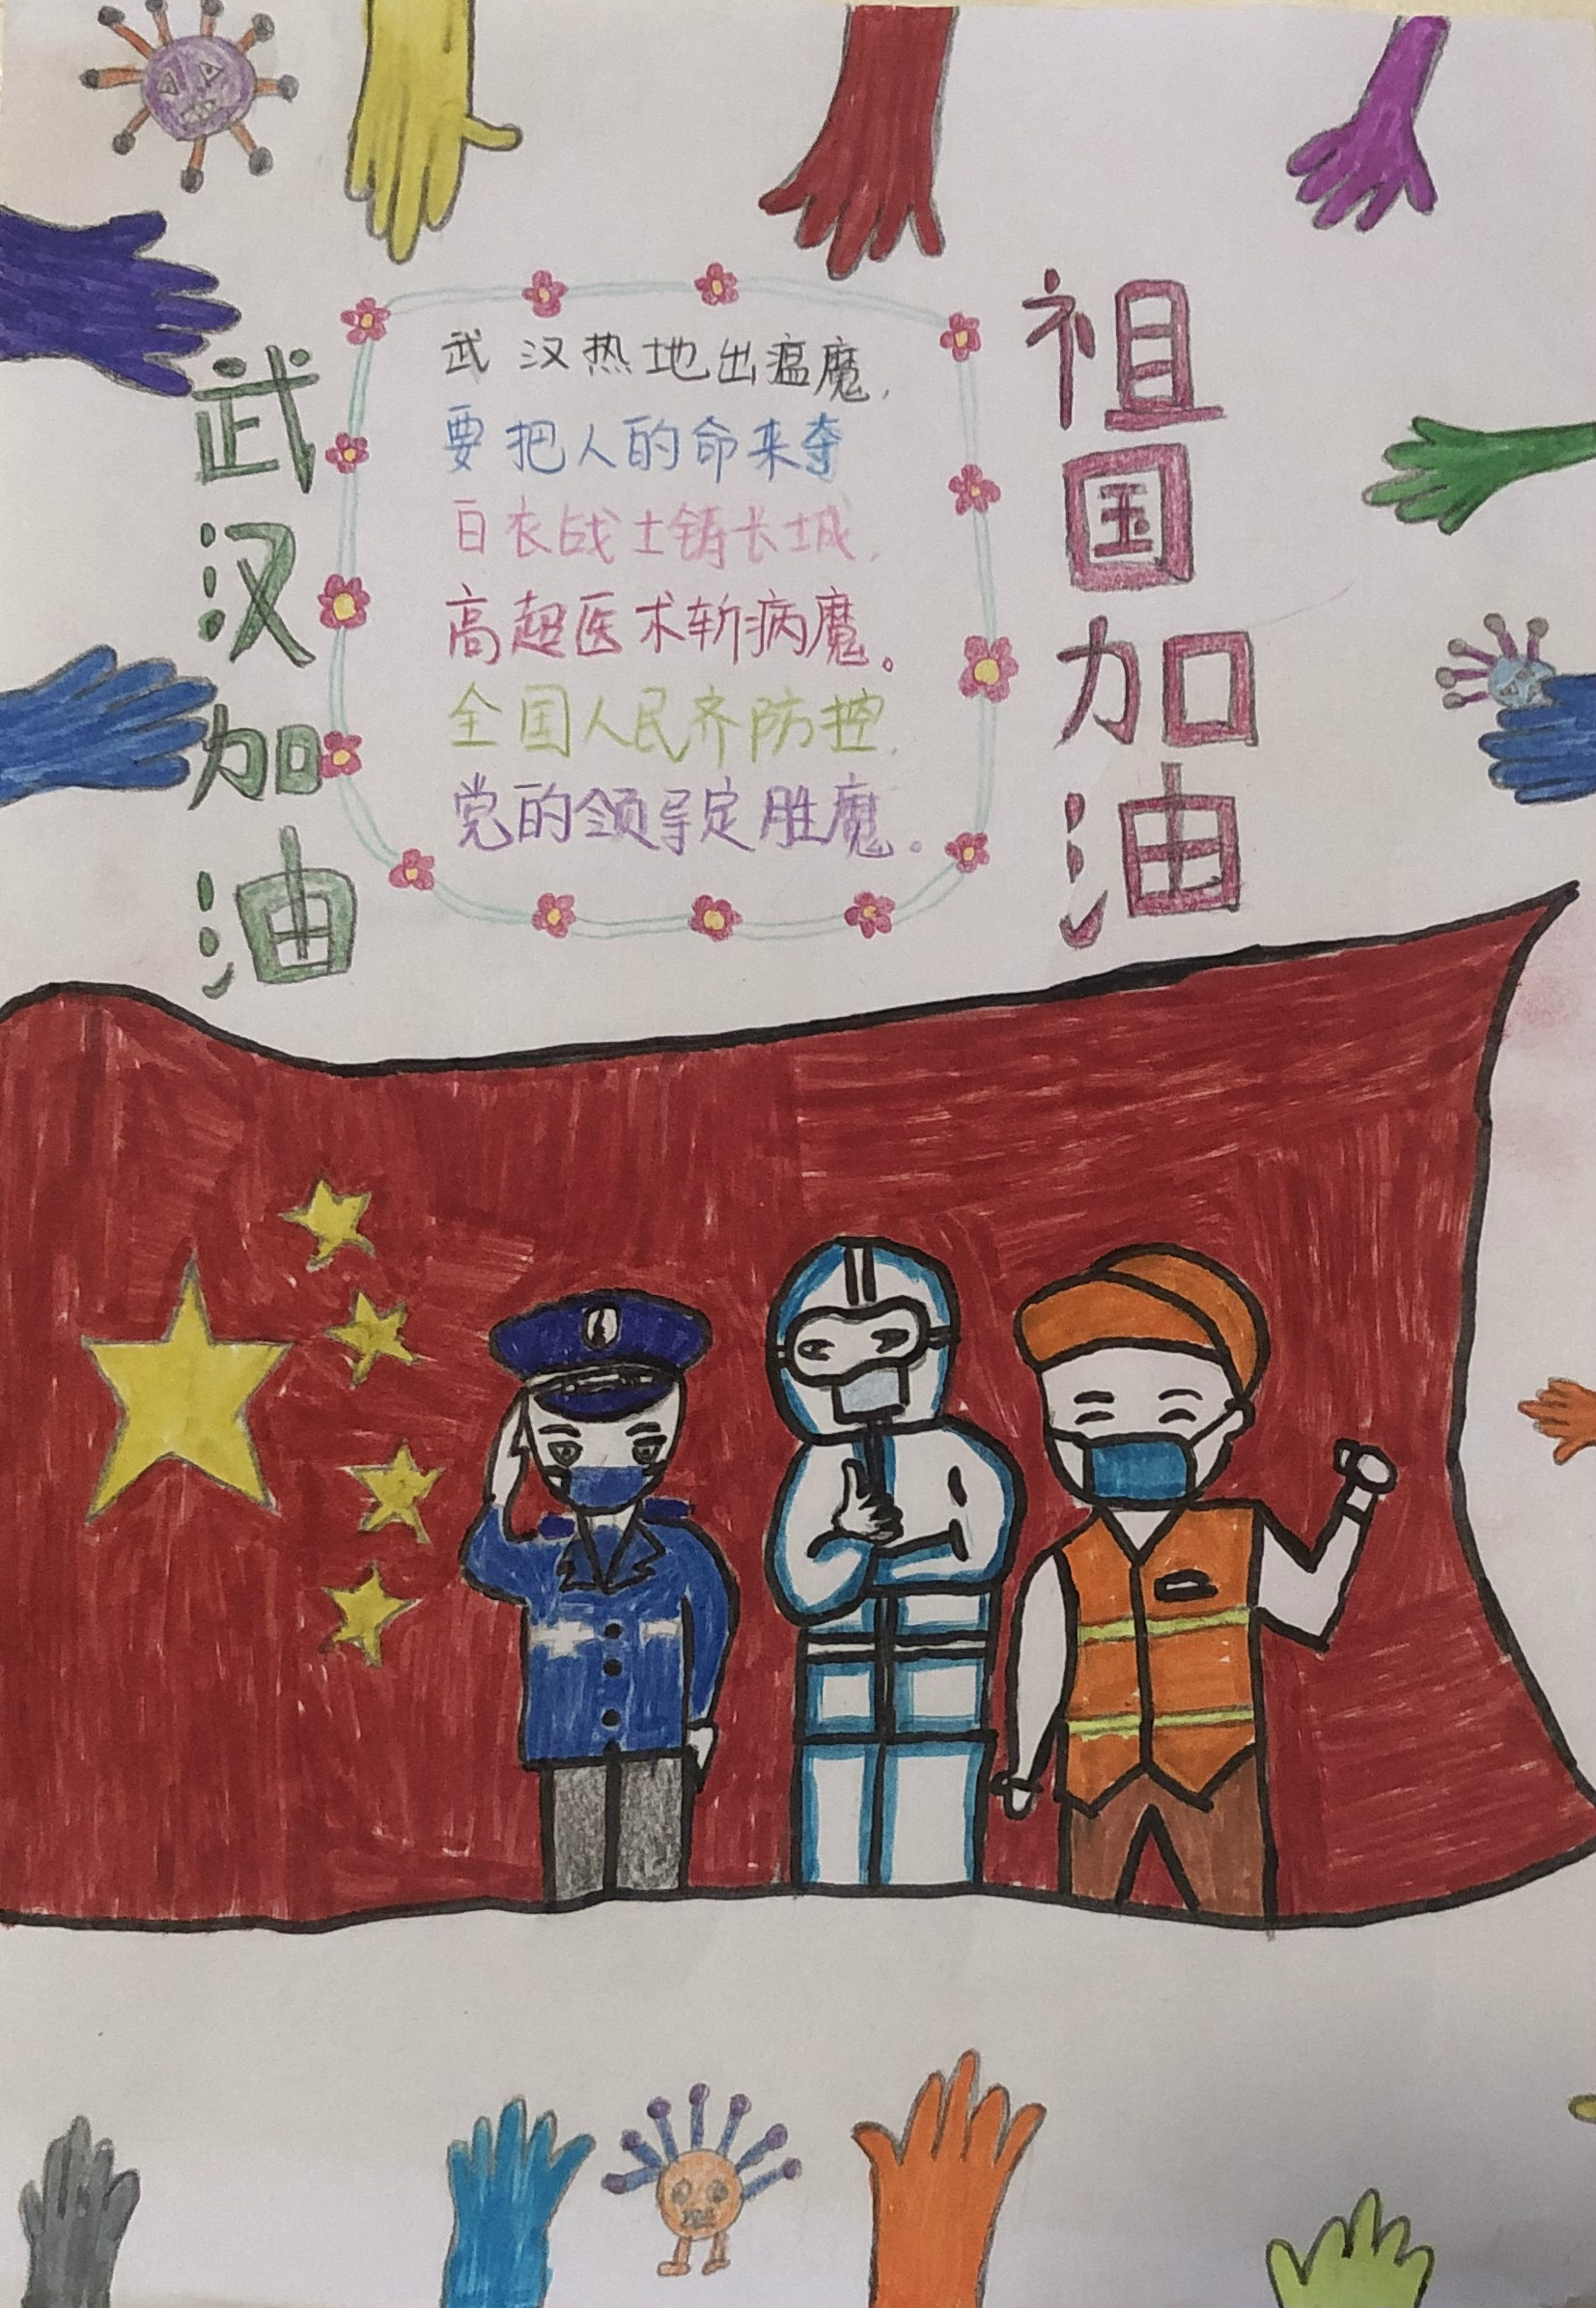 武汉加油
武汉热地出瘟魔,
要把人的命来夺
白衣战士铸长城,
高超医术斩病魔。
全国人民齐防控,
党的领导定胜魔。
祖国加油